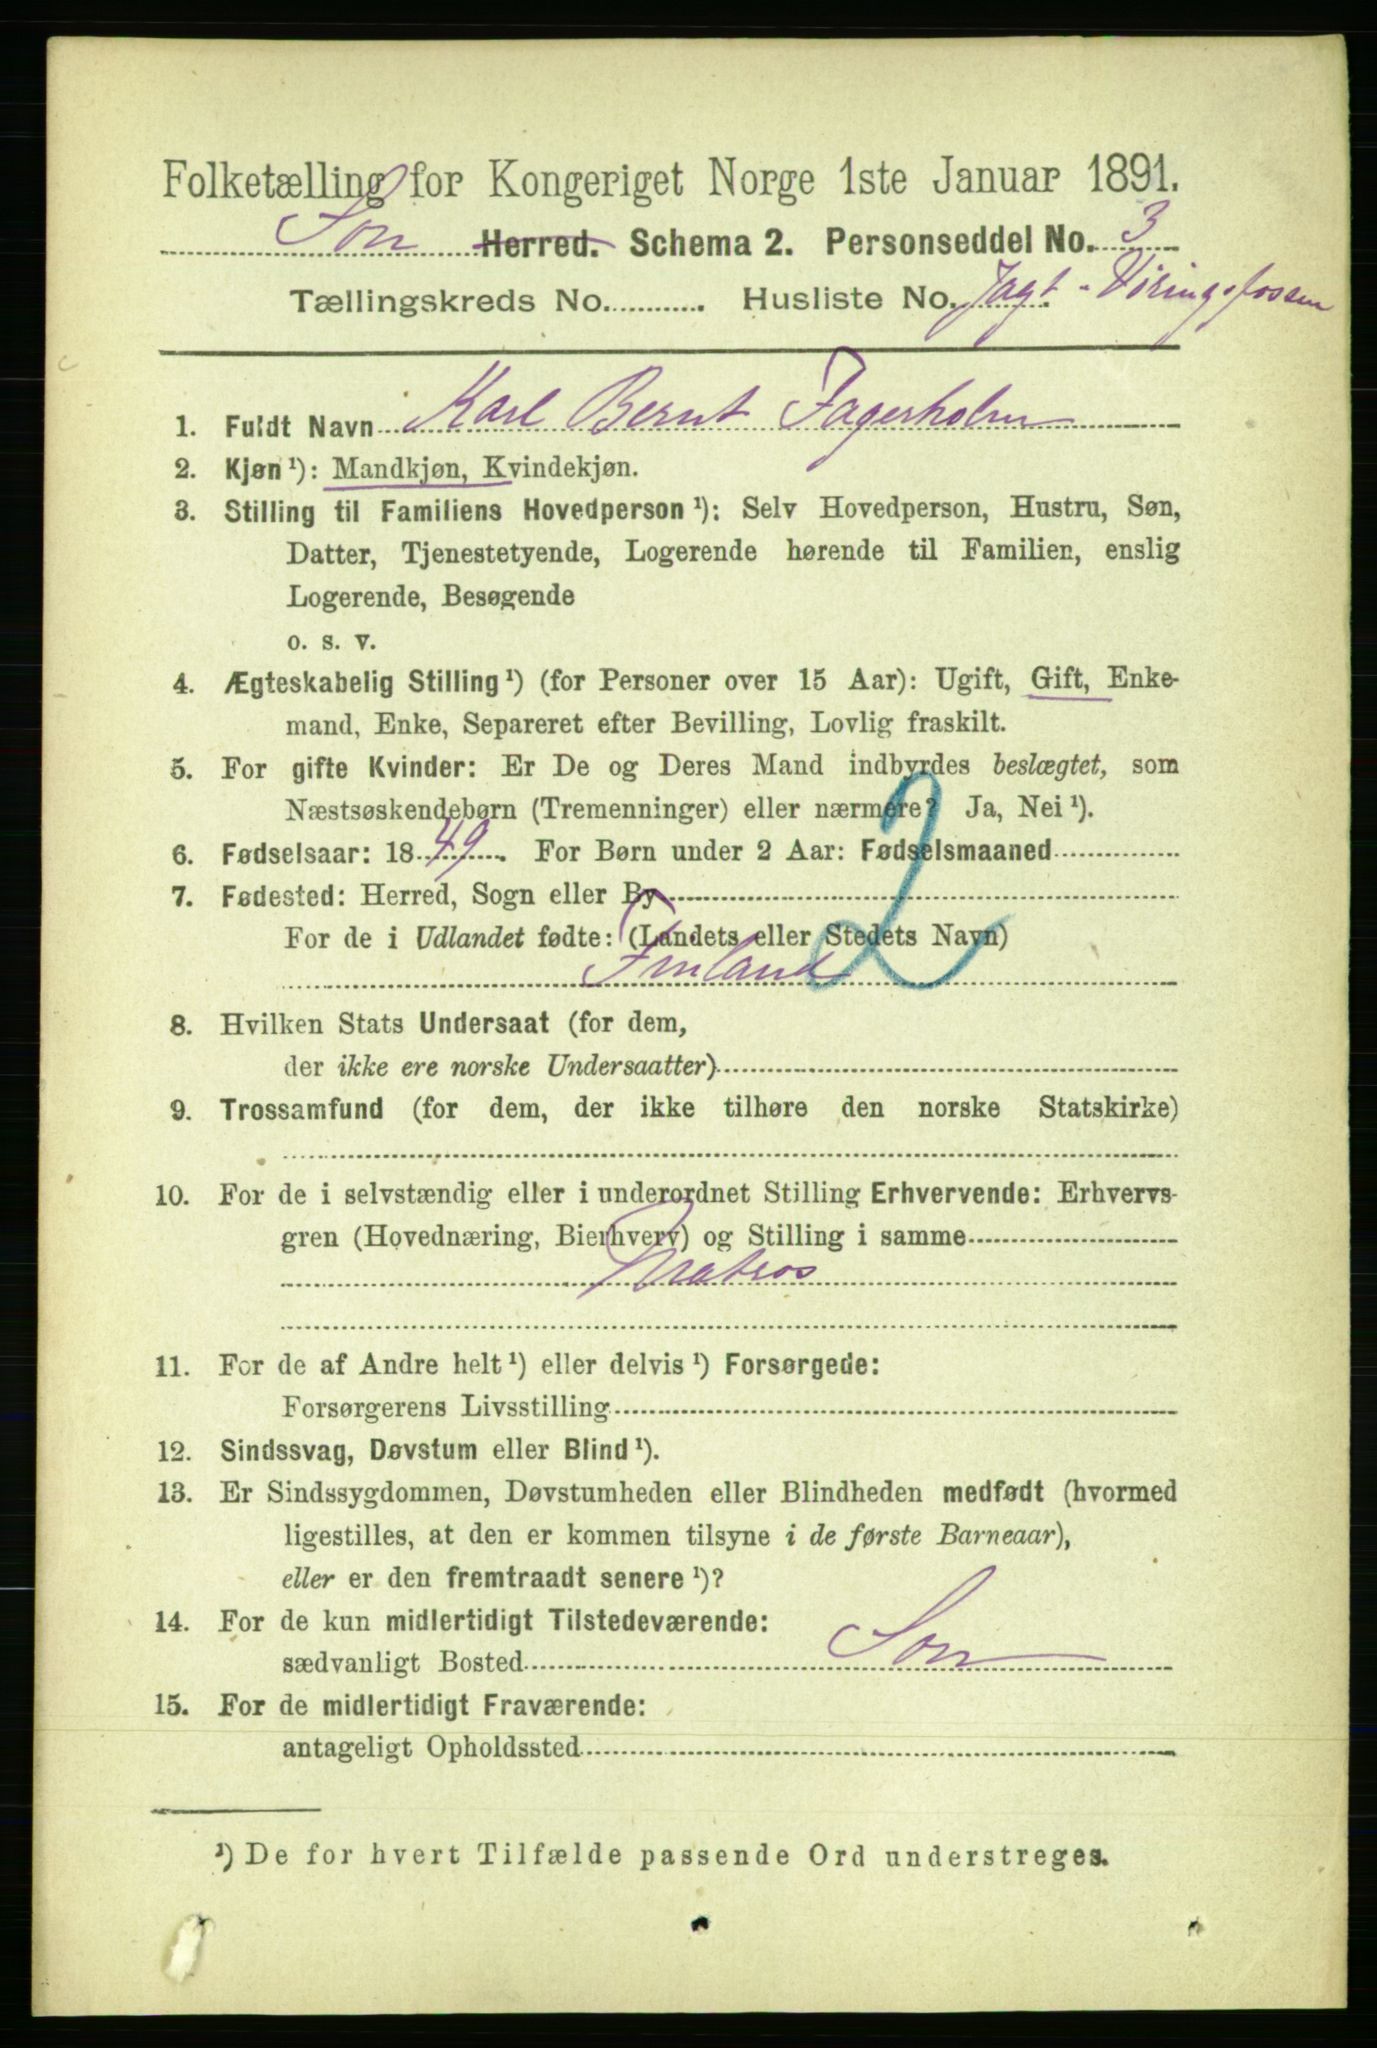 Folketælling for Kongeriget Norge 1ste Januar 1891.
Son Herred. Schema 2. Personseddel No. 3
Tællingskreds No. Husliste No. Jagt - Vøringsfossen
1. Fuldt Navn Karl Bernt Fagerholm
2. Kjøn ¹): Mandkjøn, Kvindekjøn.
3. Stilling til Familiens Hovedperson ¹): Selv Hovedperson, Hustru, Søn,
Datter, Tjenestetyende, Logerende hørende til Familien, enslig
Logerende, Besøgende
o. s. v.
4. Ægteskabelig Stilling ¹) (for Personer over 15 Aar): Ugift, Gift, Enke-
mand, Enke, Separeret efter Bevilling, Lovlig fraskilt.
5. For gifte Kvinder: Er De og Deres Mand indbyrdes beslægtet, som
Næstsøskendebørn (Tremenninger) eller nærmere? Ja, Nei ¹).
6. Fødselsaar: 1849. For Børn under 2 Aar: Fødselsmaaned
7. Fødested: Herred, Sogn eller By
For de i Udlandet fødte: (Landets eller Stedets Navn)
Finland 2
8. Hvilken Stats Undersaat (for dem,
der ikke ere norske Undersaatter)
9. Trossamfund (for dem, der ikke tilhøre den norske Statskirke)
10. For de i selvstændig eller i underordnet Stilling Erhvervende: Erhvervs-
gren (Hovednæring, Bierhverv) og Stilling i samme
Matros
11. For de af Andre helt ¹) eller delvis ¹) Forsørgede:
Forsørgerens Livsstilling
12. Sindssvag, Døvstum eller Blind ¹).
13. Er Sindssygdommen, Døvstumheden eller Blindheden medfødt (hvormed
ligestilles, at den er kommen tilsyne i de første Barneaar),
eller er den fremtraadt senere ¹)?
14. For de kun midlertidigt Tilstedeværende:
sædvanligt Bosted Son
15. For de midlertidigt Fraværende:
antageligt Opholdssted
¹) De for hvert Tilfælde passende Ord understreges.